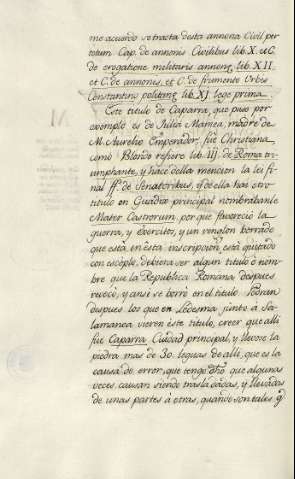 me acuerdo se tracta desta annona Civil per
totum Cap. de annonis Civilibus lib. X. et C.
de erogatione militaris annonę, lib. XII.
et C. de annonis, et C. de frumento Urbis
Constantinopolitanę lib. XJ. lege prima.
Este titulo de Caparra, que puso por
exemplo es de Julia Mamea, madre de
M. Aurelio Emperador, fue Christiana
como Blondo refiere lib. IIJ. de Roma triumphante, y hace della mencion la lei final
ff. de Senatoribus, q̃ della hai otro
titulo en Guadix principal nombrabanle
Mater Castrorum, porque favoreció la
guerra, y Exercitos, y un renglon borrado
que está en esta inscripcion, está quitado
con escoplo, debiera ser algun titulo ó nombre
que la Republica Romana despues
revocó, y ansi se borró en el titulo. Podran
despues los que en Ledesma junto á Salamanca
vieren este titulo, creer que alli
fue Caparra Ciudad principal, y llevose la
piedra mas de 30. leguas de alli, que es la
causa de error, que tengo dho que algunas
veces causan siendo trasladadas, y llevadas
de unas partes á otras, quando son tales, q̃